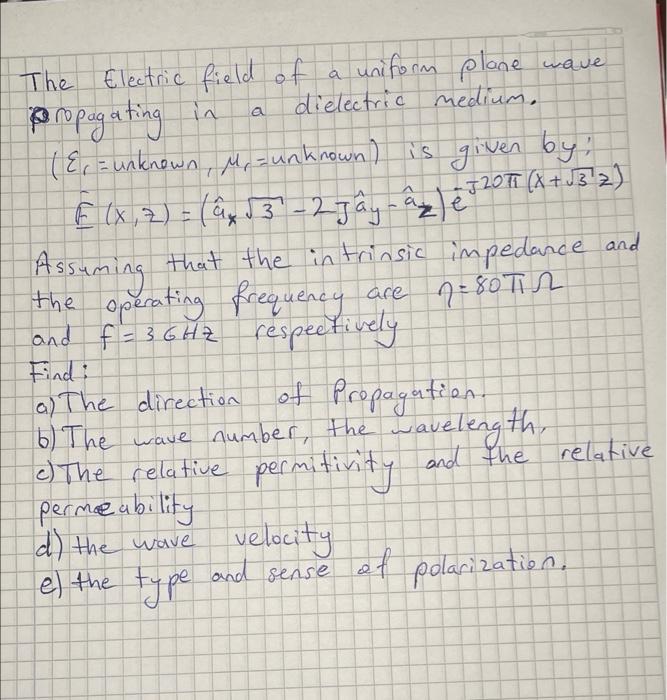 The Electric field of a uniform plane wave
propagating in a dielectric medium.
(εr = unknown, μr = unknown) is given by:
Ē (x, z) = (âx √3 - 2Jây - âz) e^-J20π(x+√3 z)
Assuming that the intrinsic impedance and
the operating frequency are η = 80πΩ
and f = 3 GHz respectively
Find:
a) The direction of Propagation.
b) The wave number, the wavelength,
c) The relative permitivity and the relative
permeability
d) the wave velocity
e) the type and sense of polarization.